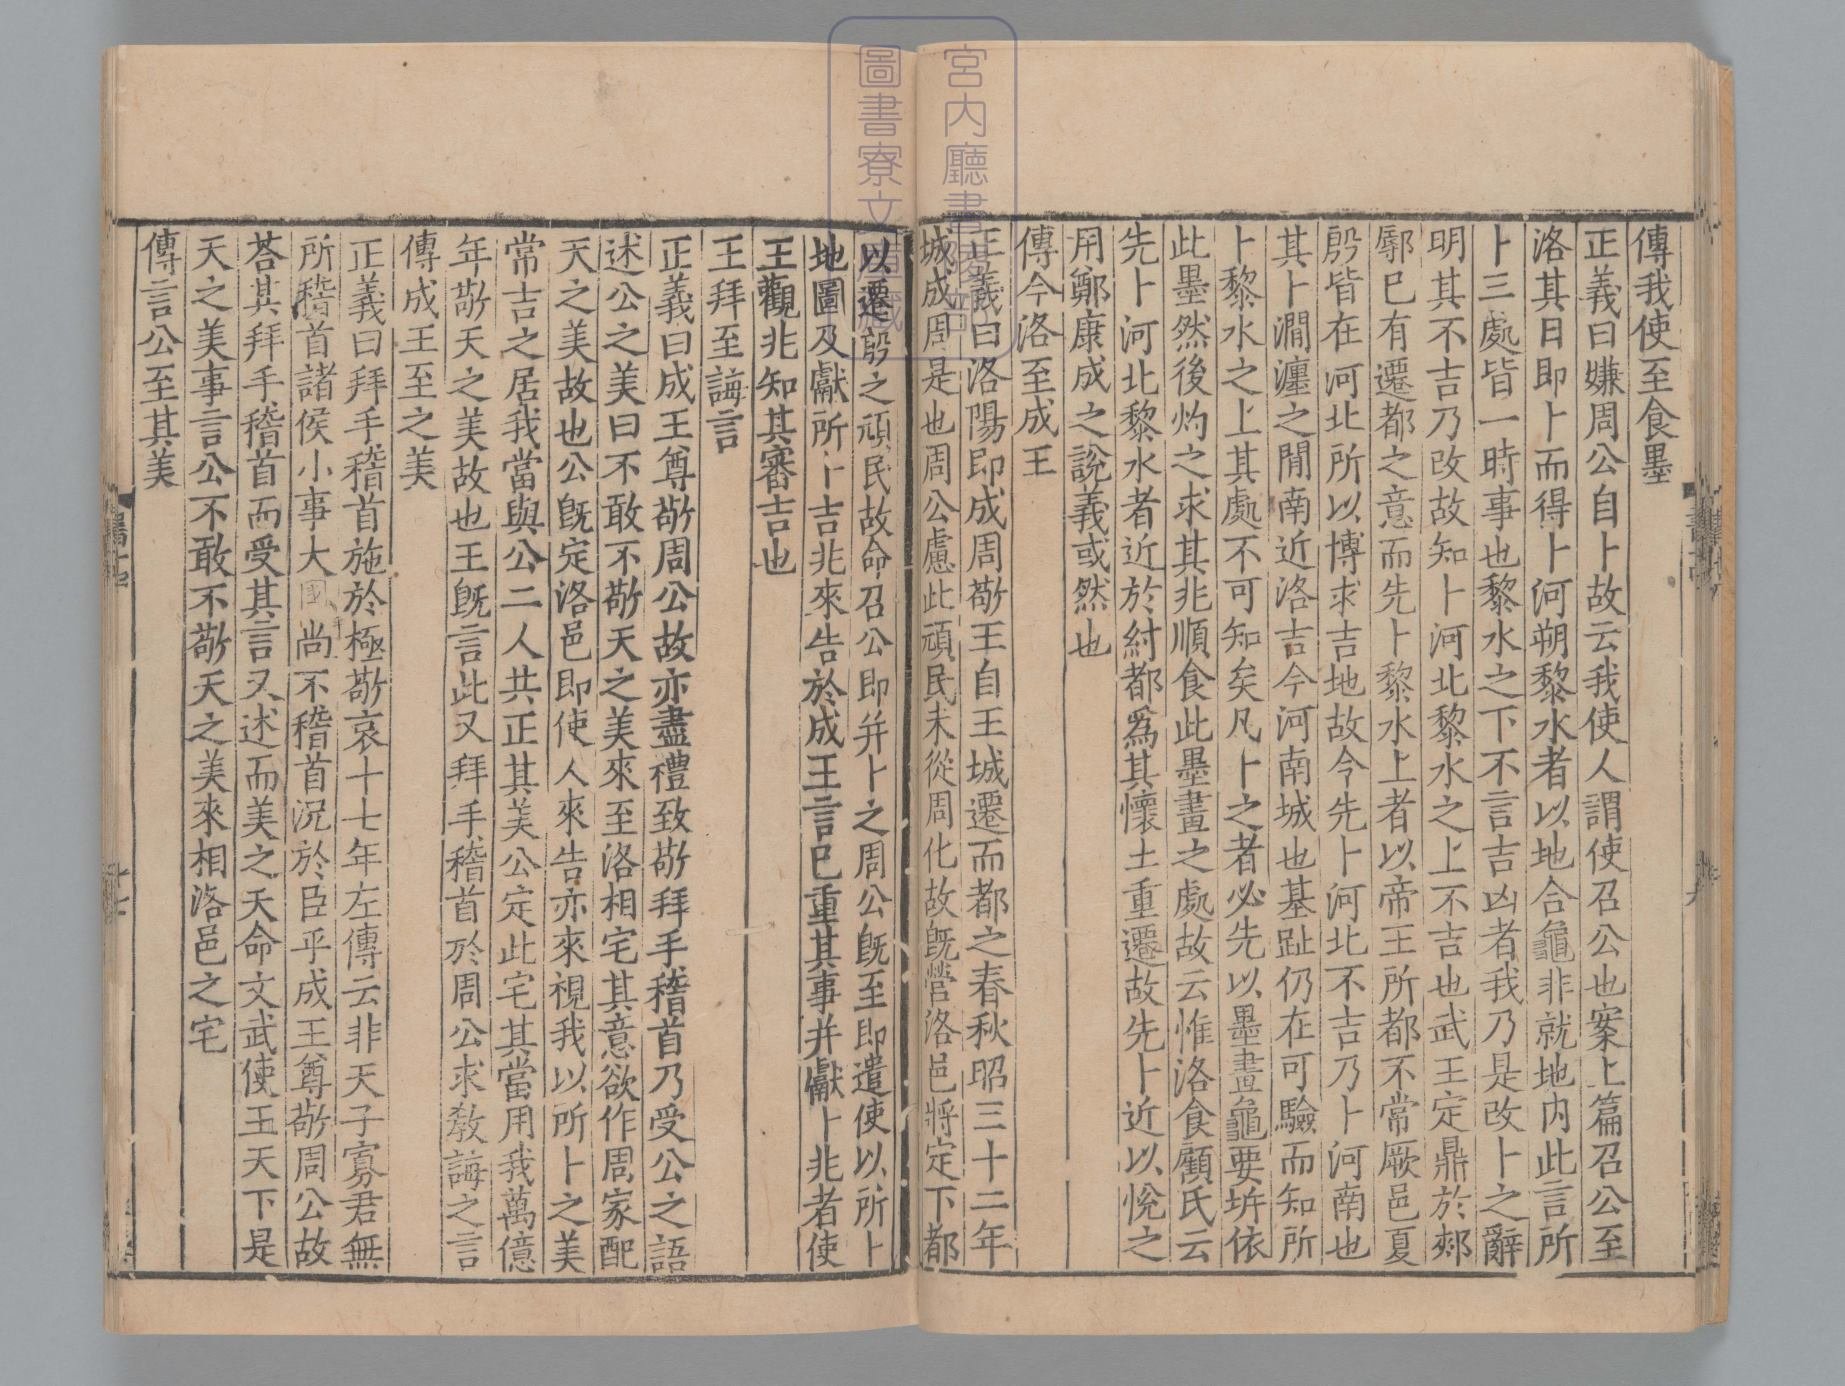 傳我使至食墨
正義曰嫌周公自卜故云我使人謂使召公也案上篇召公至
洛其日即卜而得卜河朔黎水者以地合龜非就地内此言所
卜三處皆一時事也黎水之下不言吉凶者我乃是改卜之辭
明其不吉乃改故知卜河北黎水之上不吉也武王定鼎於郟
鄏已有遷都之意而先卜黎水上者以帝王所都不常厥邑夏
殷皆在河北所以博求吉地故今先卜河北不吉乃卜河南也
其卜澗瀍之閒南近洛吉今河南城也基趾仍在可驗而知所
卜黎水之上其處不可知矣凡卜之者必先以墨畫龜要坼依
此墨然後灼之求其兆順食此墨畫之處故云惟洛食顧氏云
先卜河北黎水者近於紂都爲其懷土重遷故先卜近以悅之
用鄭康成之說義或然也
傳今洛至成王
正義曰洛陽即成周敬王自王城遷而都之春秋昭三十二年
城成周是也周公慮此頑民未從周化故既營洛邑將定下都
以遷殷之頑民故命召公即并卜之周公既至即遣使以所卜
地圖及獻所卜吉兆來告於成王言已重其事并獻卜兆者使
王觀兆知其審吉也
王拜至誨言
正義曰成王尊敬周公故亦盡禮致敬拜手稽首乃受公之語
述公之美曰不敢不敬天之美來至洛相宅其意欲作周家配
天之美故也公既定洛邑即使人來告亦來視我以所卜之美
常吉之居我當與公二人共正其美公定此宅其當用我萬億
年敬天之美故也王既言此又拜手稽首於周公求教誨之言
傳成王至之美
正義曰拜手稽首施於極敬哀十七年左傳云非天子寡君無
所稽首諸侯小事大國尚不稽首況於臣乎成王尊敬周公故
荅其拜手稽首而受其言又述而美之天命文武使王天下是
天之美事言公不敢不敬天之美來相洛邑之宅
傳言公至其美
宮内廳書陵部
圖書寮文庫藏
十七